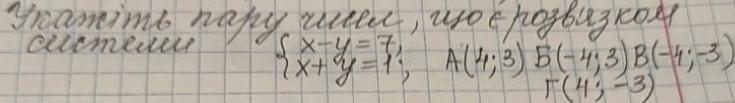 Укажіть пару чисел, що є розвязком
системи { x-y=7;
{ x+y=1; А(4;3) Б(-4;3) В(-4;-3)
Г(4;-3)